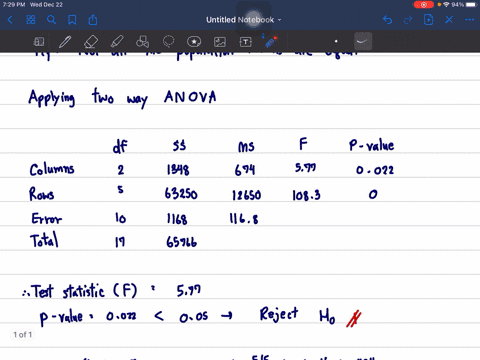 7:29 PM Wed Dec 22
94%
Untitled Notebook
Applying two way ANOVA
df SS ms F P-value
Columns 2 1348 674 5.77 0.022
Rows 5 63250 12650 108.3 0
Error 10 1168 116.8
Total 17 65766
∴ Test statistic (F) = 5.77
p-value = 0.022 < 0.05 → Reject H₀
1 of 1